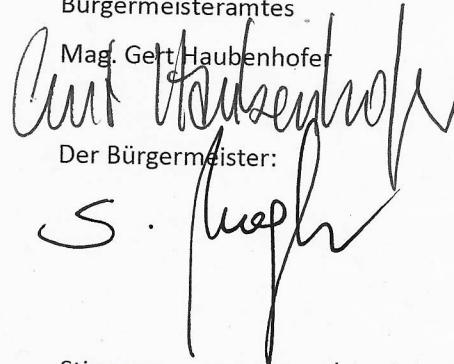 Bürgermeisteramtes
Mag. Gert Haubenhofer
Gert Haubenhofer
Der Bürgermeister:
S.